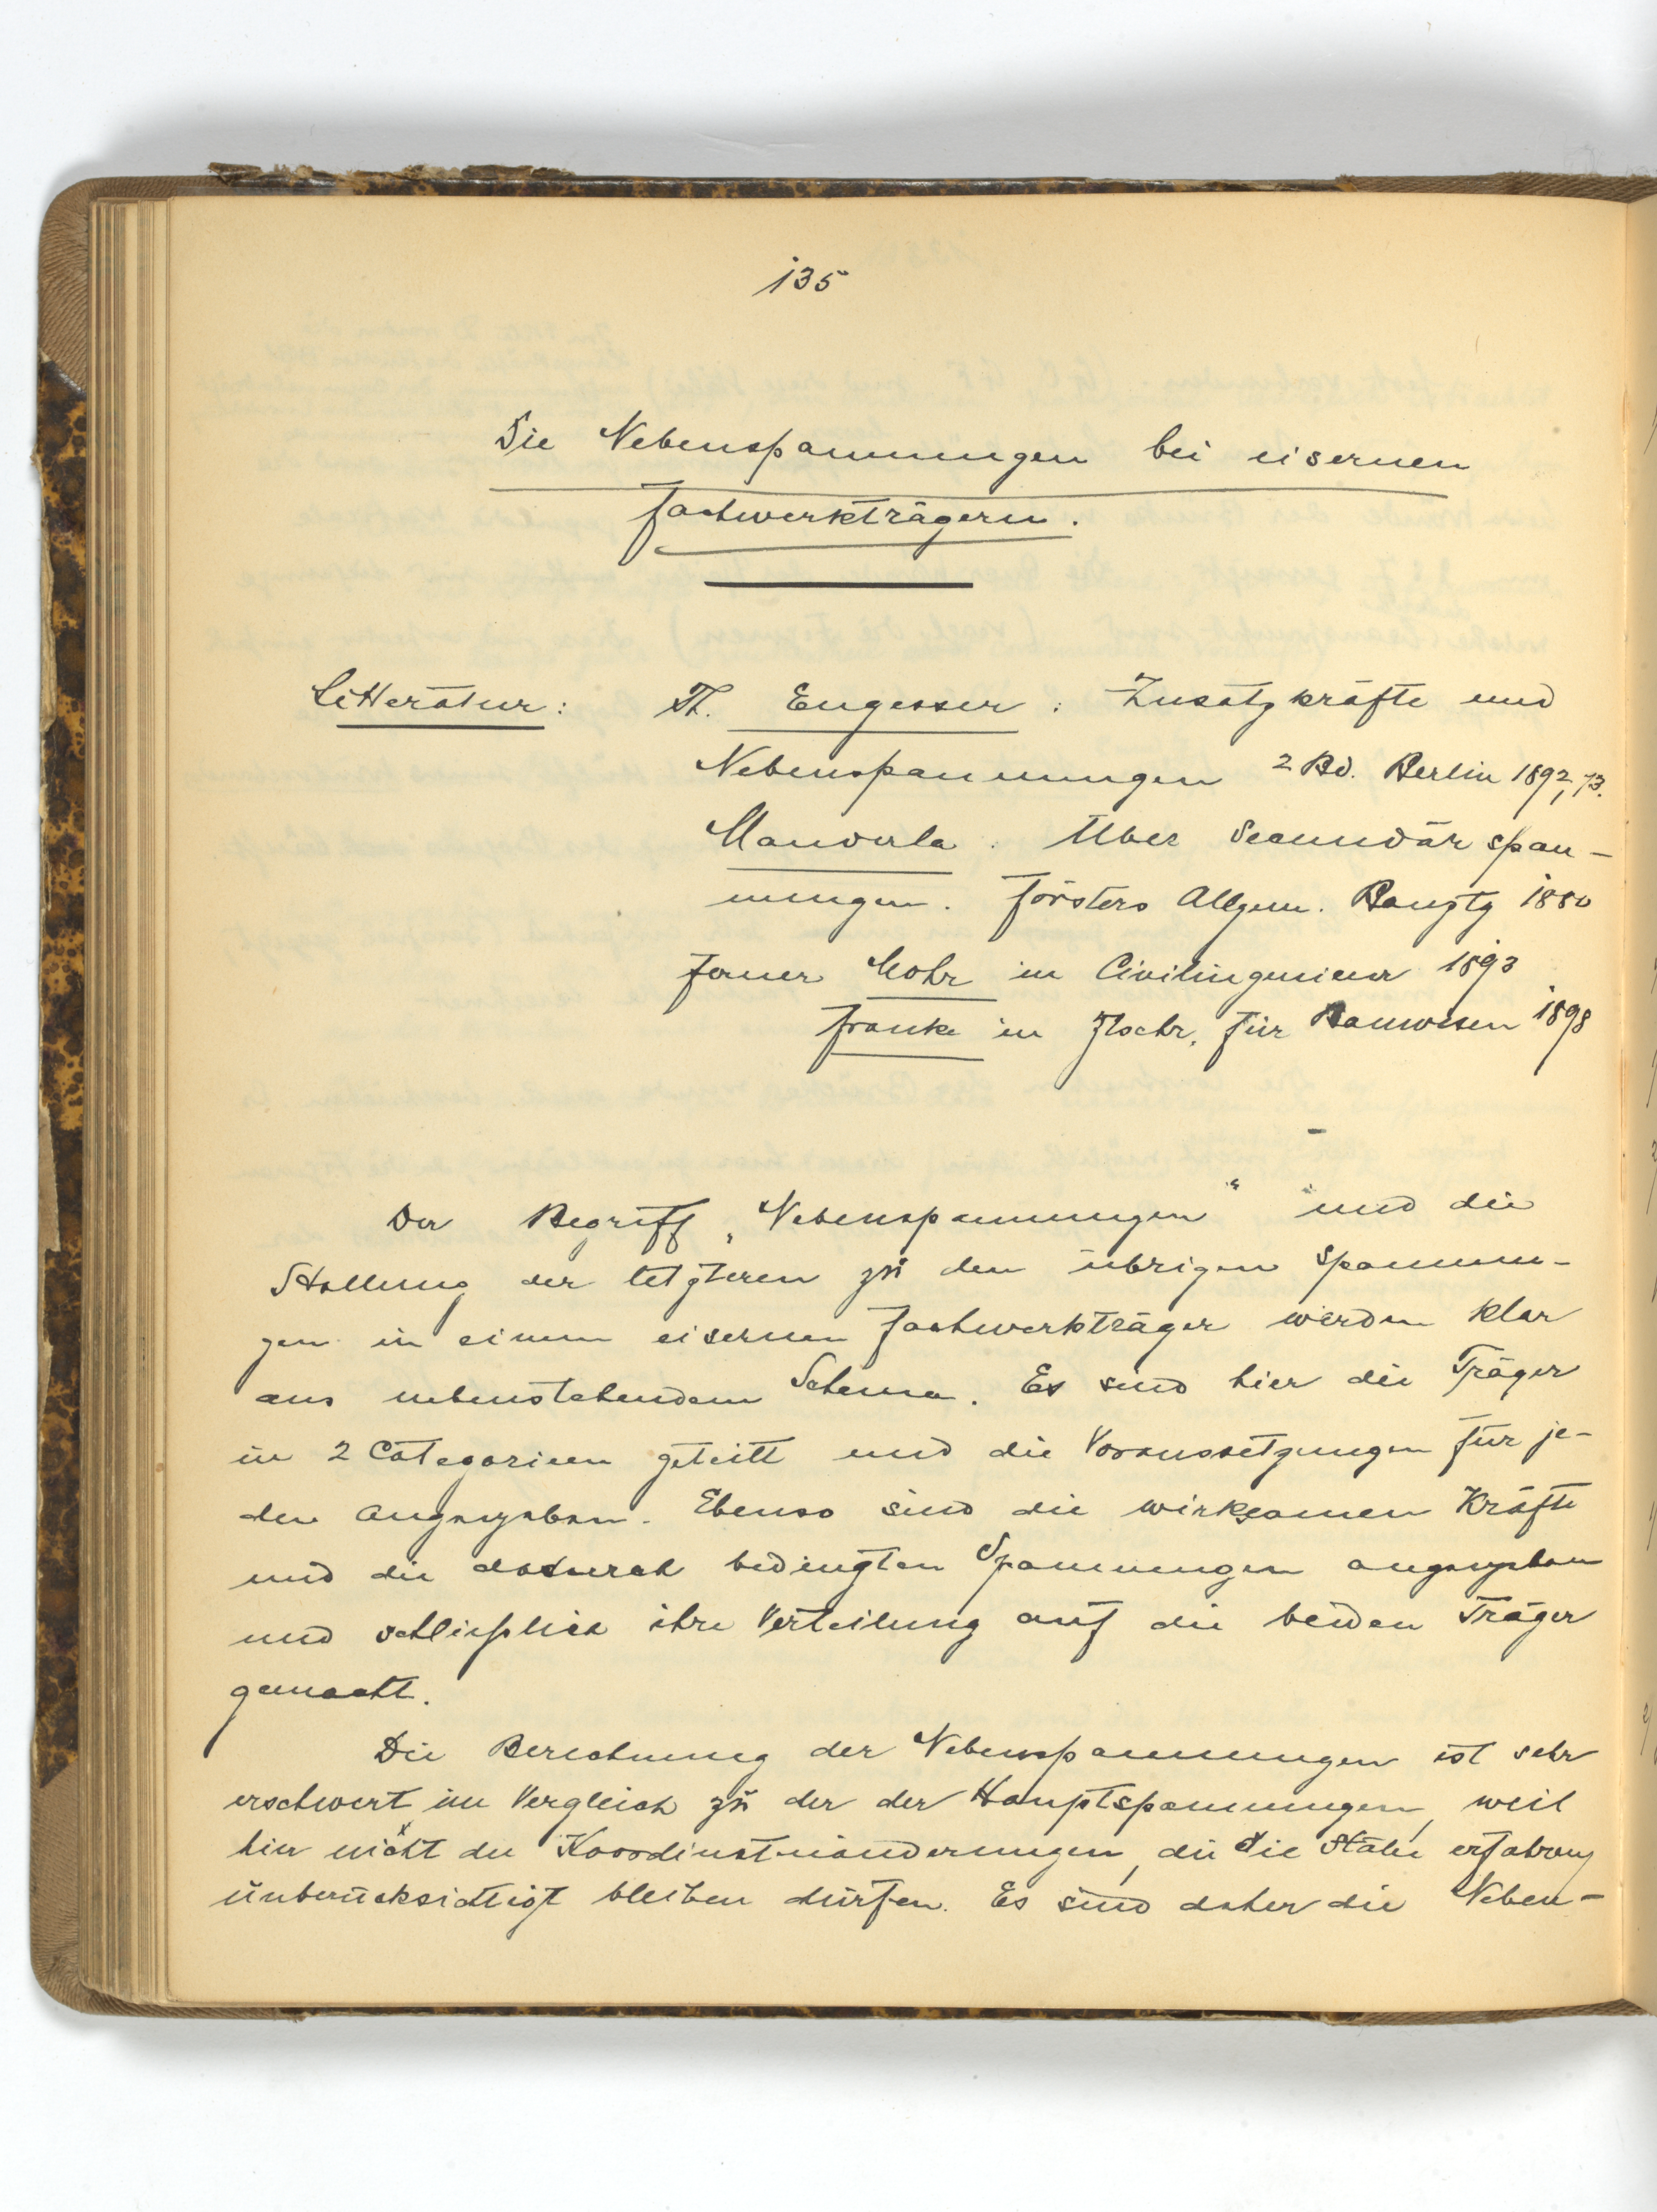 135
Die Nebenspannungen bei eisernen
Fachwerkträgern.
Litteratur: Th. Engesser: Zusatzkräfte und
Nebenspannungen 2 Bd. Berlin 1892, 93.
Manderla. Über Secundärspan-
nungen. Försters Allgem. Bauztg 1880
ferner Mohr in Civilingenieur 1893
Franke in Ztschr. für Bauwesen 1898
Der Begriff „Nebenspannungen“ und die
Stellung der letzteren zu den übrigen Spannun-
gen in einem eisernen Fachwerkträger werden klar
aus nebenstehendem Schema. Es sind hier die Träger
in 2 Categorieen geteilt und die Voraussetzungen für je-
den angegeben. Ebenso sind die wirksamen Kräfte
und die dadurch bedingten Spannungen angegeben
und schließlich ihre Verteilung auf die beiden Träger
gemacht.
Die Berechnung der Nebenspannungen ist sehr
erschwert im Vergleich zu der der Hauptspannungen, weil
hier nicht die Koordinatenänderungen, die die Stäbe erfahren
unberücksichtigt bleiben dürfen. Es sind daher die Neben-